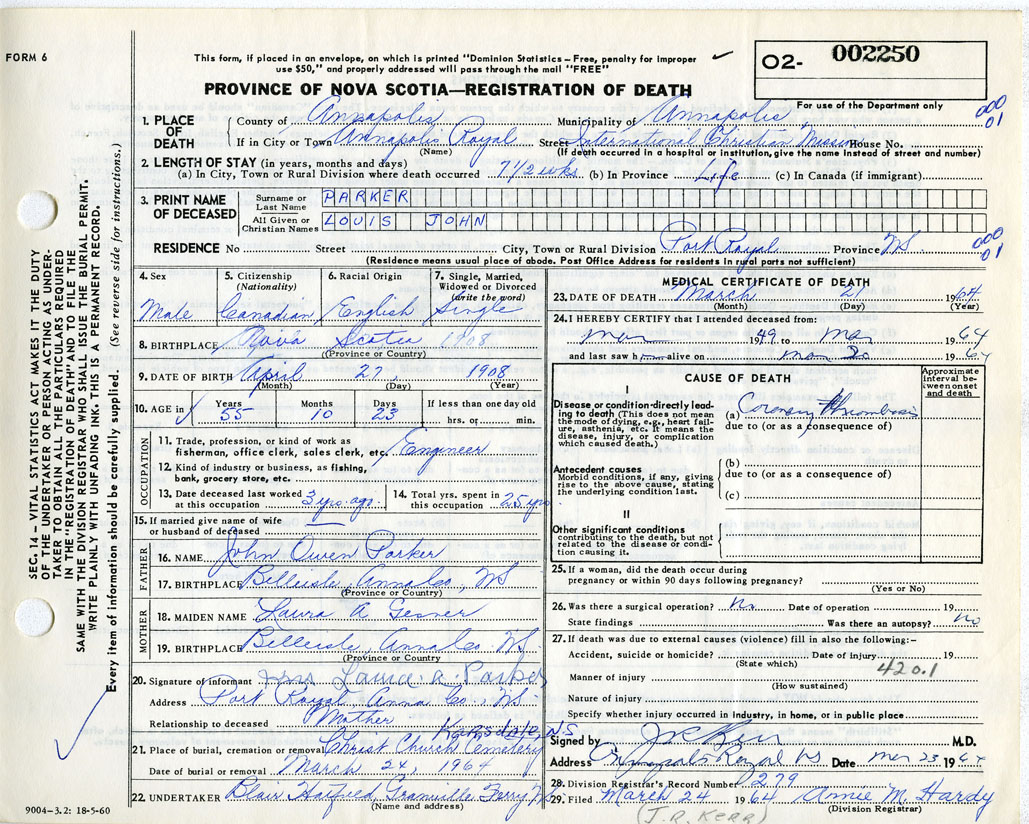 FORM 6
This form, if placed in an envelope, on which is printed "Dominion Statistics – Free, penalty for improper
use $50," and properly addressed will pass through the mail "FREE"
O2- 002250
PROVINCE OF NOVA SCOTIA—REGISTRATION OF DEATH
For use of the Department only
000
01
1. PLACE OF DEATH
County of Annapolis Municipality of Annapolis
If in City or Town Annapolis Royal Street International Christian Mission House No.
(Name) (If death occurred in a hospital or institution, give the name instead of street and number)
2. LENGTH OF STAY (in years, months and days)
(a) In City, Town or Rural Division where death occurred 7 1/2 wks (b) In Province Life (c) In Canada (if immigrant)
3. PRINT NAME OF DECEASED
Surname or Last Name PARKER
All Given or Christian Names LOUIS JOHN
RESIDENCE No Street City, Town or Rural Division Port Royal Province NS
000
01
(Residence means usual place of abode. Post Office Address for residents in rural parts not sufficient)
4. Sex
Male
5. Citizenship (Nationality)
Canadian
6. Racial Origin
English
7. Single, Married, Widowed or Divorced (write the word)
Single
8. BIRTHPLACE Nova Scotia 1908
(Province or Country)
9. DATE OF BIRTH April 27 1908
(Month) (Day) (Year)
10. AGE in
Years 55
Months 10
Days 23
If less than one day old
hrs. or min.
OCCUPATION
11. Trade, profession, or kind of work as
fisherman, office clerk, sales clerk, etc. Engineer
12. Kind of industry or business, as fishing,
bank, grocery store, etc.
13. Date deceased last worked
at this occupation 3 yrs. ago.
14. Total yrs. spent in
this occupation 25 yrs
15. If married give name of wife
or husband of deceased
FATHER
16. NAME John Owen Parker
17. BIRTHPLACE Belleisle, Anna Co, NS
(Province or Country)
MOTHER
18. MAIDEN NAME Laura A Gesner
19. BIRTHPLACE Belleisle, Anna Co, NS
(Province or Country
20. Signature of informant Mrs Laura A. Parker
Address Port Royal Anna Co., NS
Relationship to deceased Mother
Karsdale, N.S
21. Place of burial, cremation or removal Christ Church Cemetery
Date of burial or removal March 24, 1964
22. UNDERTAKER Blair Hatfield, Granville Ferry, NS
(Name and address)
9004-3.2: 18-5-60
MEDICAL CERTIFICATE OF DEATH
23. DATE OF DEATH March 21 1964
(Month) (Day)
24. I HEREBY CERTIFY that I attended deceased from:
mar 1949 to Mar 1964
and last saw him alive on mar 20 1964
CAUSE OF DEATH
Approximate interval between onset and death
I
Disease or condition directly leading to death (This does not mean the mode of dying, e.g., heart failure, asthenia, etc. It means the disease, injury, or complication which caused death.)
(a) Coronary Thrombosis
due to (or as a consequence of)
Antecedent causes
Morbid conditions, if any, giving rise to the above cause, stating the underlying condition last.
(b)
due to (or as a consequence of)
(c)
II
Other significant conditions
contributing to the death, but not related to the disease or condition causing it.
25. If a woman, did the death occur during
pregnancy or within 90 days following pregnancy?
(Yes or No)
26. Was there a surgical operation? No Date of operation 19
State findings Was there an autopsy? No
27. If death was due to external causes (violence) fill in also the following:–
Accident, suicide or homicide? Date of injury 19
(State which)
420.1
Manner of injury
(How sustained)
Nature of injury
Specify whether injury occurred in Industry, in home, or in public place
Signed by J R Kerr M.D.
Address Annapolis Royal NS Date Mar 23 1964
28. Division Registrar's Record Number 279
29. Filed March 24 1964 Annie M. Hardy
(Division Registrar)
(J.R. KERR)
SEC. 14 – VITAL STATISTICS ACT MAKES IT THE DUTY
OF THE UNDERTAKER OR PERSON ACTING AS UNDERTAKER TO OBTAIN ALL THE PARTICULARS REQUIRED
IN THE "REGISTRATION OF DEATH" AND TO FILE THE
SAME WITH THE DIVISION REGISTRAR WHO SHALL ISSUE THE BURIAL PERMIT.
WRITE PLAINLY WITH UNFADING INK. THIS IS A PERMANENT RECORD.
Every item of information should be carefully supplied. (See reverse side for instructions.)